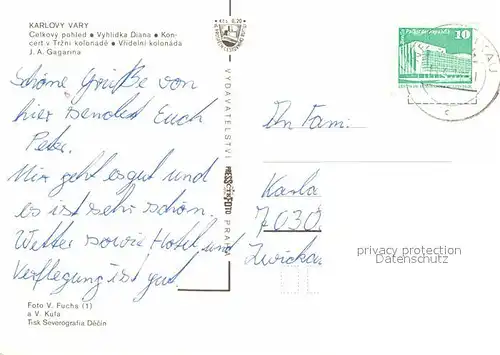 KARLOVY VARY
Celkový pohled • Vyhlídka Diana • Kon-
cert v Tržní kolonádě • Vřídelní kolonáda
J. A. Gagarina
Schöne Grüße von
hier sendet Euch
Peter.
Mir geht es gut und
es ist sehr schön.
Wetter sowie Hotel und
Verflegung ist gut.
Foto V. Fuchs (1)
a V. Kufa
Tisk Severografia Děčín
VYDAVATELSTVÍ PRESSFOTO PRAHA
10
An Fam.
Karla
7030
Zwickau
privacy protection
Datenschutz